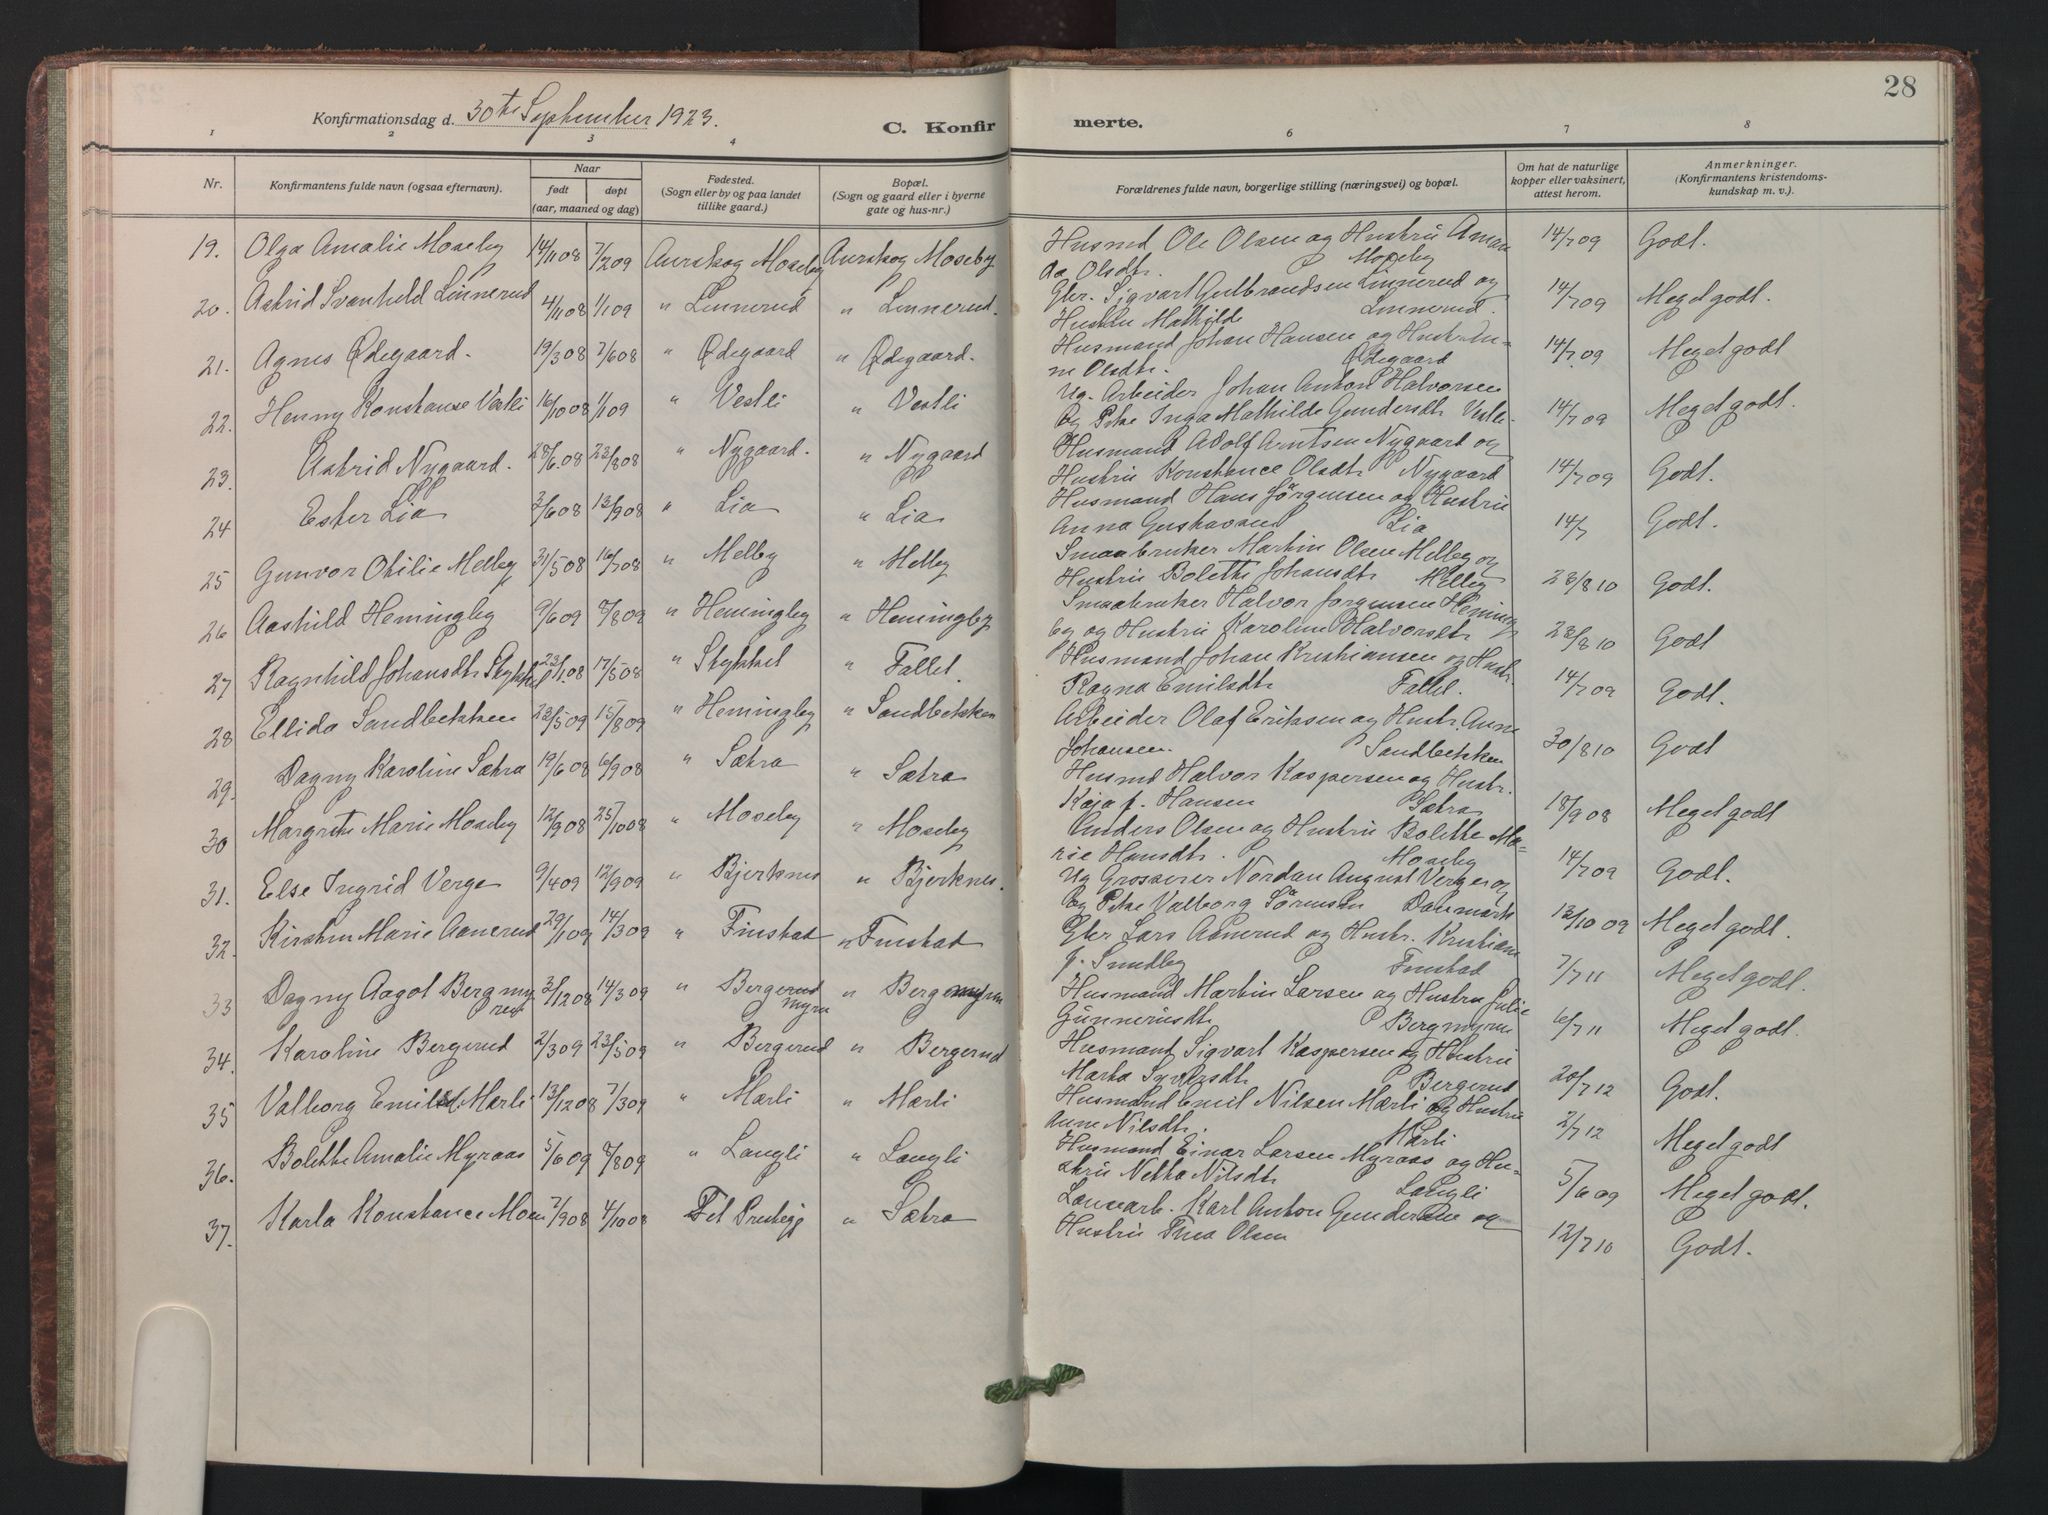 28
Konfirmationsdag d. 30te September 1923.
C. Konfirmerte.
1 2 3 4 6 7 8
Nr.
Konfirmantens fulde navn (ogsaa efternavn).
Naar
født
døpt
(aar, maaned og dag)
Fødested.
(Sogn eller by og paa landet
tillike gaard.)
Bopæl.
(Sogn og gaard eller i byerne
gate og hus-nr.)
Forældrenes fulde navn, borgerlige stilling (næringsvei) og bopæl.
Om hat de naturlige
kopper eller vaksinert,
attest herom.
Anmerkninger.
(Konfirmantens kristendoms-
kundskap m. v.).
19. Olga Amalie Moseby 14/11 08 7/2 09 Aurskog Moseby Aurskog Moseby Husmd Ole Olsen og Hustru Aman 14/7 09 Godt.
da Olsdtr. Moseby
20. Astrid Svanhild Linnerud 4/11 08 1/1 09 " Linnerud " Linnerud. Gbr. Sigvart Gulbrandsen Linnerud og 14/7 09 Meget godt.
Hustru Mathilde Linnerud.
21. Agnes Ødegaard. 19/3 08 7/6 08 " Ødegaard " Ødegaard. Husmand Johan Hansen og Hustr. An- 14/7 09 Meget godt
ne Olsdtr. Ødegaard
22. Henny Konstanse Vestli 16/10 08 1/1 09 " Vestli " Vestli Ug. Arbeider Johan Anton Halvorsen 14/7 09 Meget godt.
og Pike Inga Mathilde Gundersdtr Vestli.
23. Astrid Nygaard. 28/6 08 23/8 08 " Nygaard. " Nygaard Husmand Adolf Arntsen Nygaard og 14/7 09 Godt.
Hustru Konstance Olsdtr Nygaard
24 Ester Lia 3/6 08 13/9 08 " Lia " Lia Husmand Hans Jørgensen og Hustru 14/7 Godt.
Anna Gustavsd Lia
25 Gunvor Otilie Melby 31/5 08 16/7 08 " Melby " Melby Smaabruker Martin Olsen Melby og 23/8 10 Godt.
Hustru Bolette Johansdtr Melby
26 Aashild Hemingby 9/6 09 8/8 09 " Hemingby " Hemingby Smaabruker Halvor Jørgensen Heming 23/8 10 Godt
by og Hustru Karoline Halvorsdtr
27 Ragnhild Johansdtr Stykket 23/1 08 17/5 08 " Stykket " Fallet. Husmand Johan Kristiansen og Hustr. 14/7 09 Godt.
Ragna Emilsdtr Fallet.
28 Ellida Sandbekken 23/5 09 15/8 09 " Hemingby " Sandbekken Arbeider Olaf Eriksen og Hustr. Anne 30/8 10 Godt
Johansen. Sandbekken
29. Dagny Karoline Sætra 19/6 08 6/9 08 " Sætra " Sætra Husmd Halvor Kaspersen og Hustr. 18/9 08 Meget godt
Kaja f. Hansen Sætra
30 Margrete Marie Moseby 12/9 08 25/10 08 " Moseby " Moseby Anders Olsen og Hustru Bolette Ma- 14/7 09 Godt.
rie Hansdtr. Moseby
31. Else Ingrid Verge 9/4 09 12/9 09 " Bjerknes " Bjerknes. Ug Grosserer Nordan August Verge og 13/10 09 Meget godt.
og Pike Valborg Sørensen Danmark
32. Kirsten Marie Aanerud 29/1 09 14/3 09 " Finstad " Finstad Gbr Lars Aanerud og Hustr. Kristiane 7/7 11 Meget godt.
f. Sundby Finstad
33 Dagny Aagot Bergmyr 3/12 08 14/3 09 " Bergerud myra " Bergmyra Husmand Martin Larsen og Hustru Julie 6/7 11 Meget godt.
Gunneriusdtr Bergmyra
34. Karoline Bergerud 2/3 09 23/5 09 " Bergerud " Bergerud Husmand Sigvart Kaspersen og Hustru 20/7 12 Godt.
Marta Syversdtr Bergerud
35 Valborg Emilsd. Mærli 13/12 08 7/3 09 " Mærli " Mærli Husmand Emil Nilsen Mærli og Hustru 2/7 12 Meget godt
Anne Nilsdtr. Mærli
36. Bolette Amalie Myraas 5/6 09 8/8 09 " Langli " Langli Husmand Einar Larsen Myraas og Hu- 5/6 09 Meget godt.
stru Netta Nilsdtr Langli
37. Karla Konstance Moen 7/9 08 4/10 08 Fet Prestegj " Sætra Løsearb. Karl Anton Gundersen og 12/7 10 Godt.
Hustru Thea Olsen